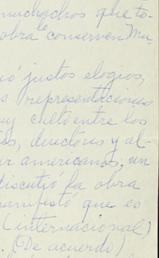 muchachos que to-
obra conserven Mu-
ió justos elogios,
s representaciones
uy culto entre los
sos, directores y al-
ur americanos, un
discutió la obra
manifestó que es
(internacional)
. (De acuerdo)